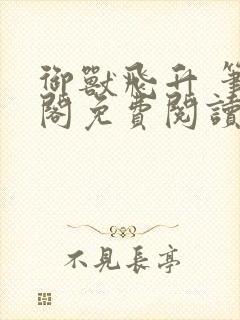 御獸飛升 筆
閣免費閱讀
不見長亭